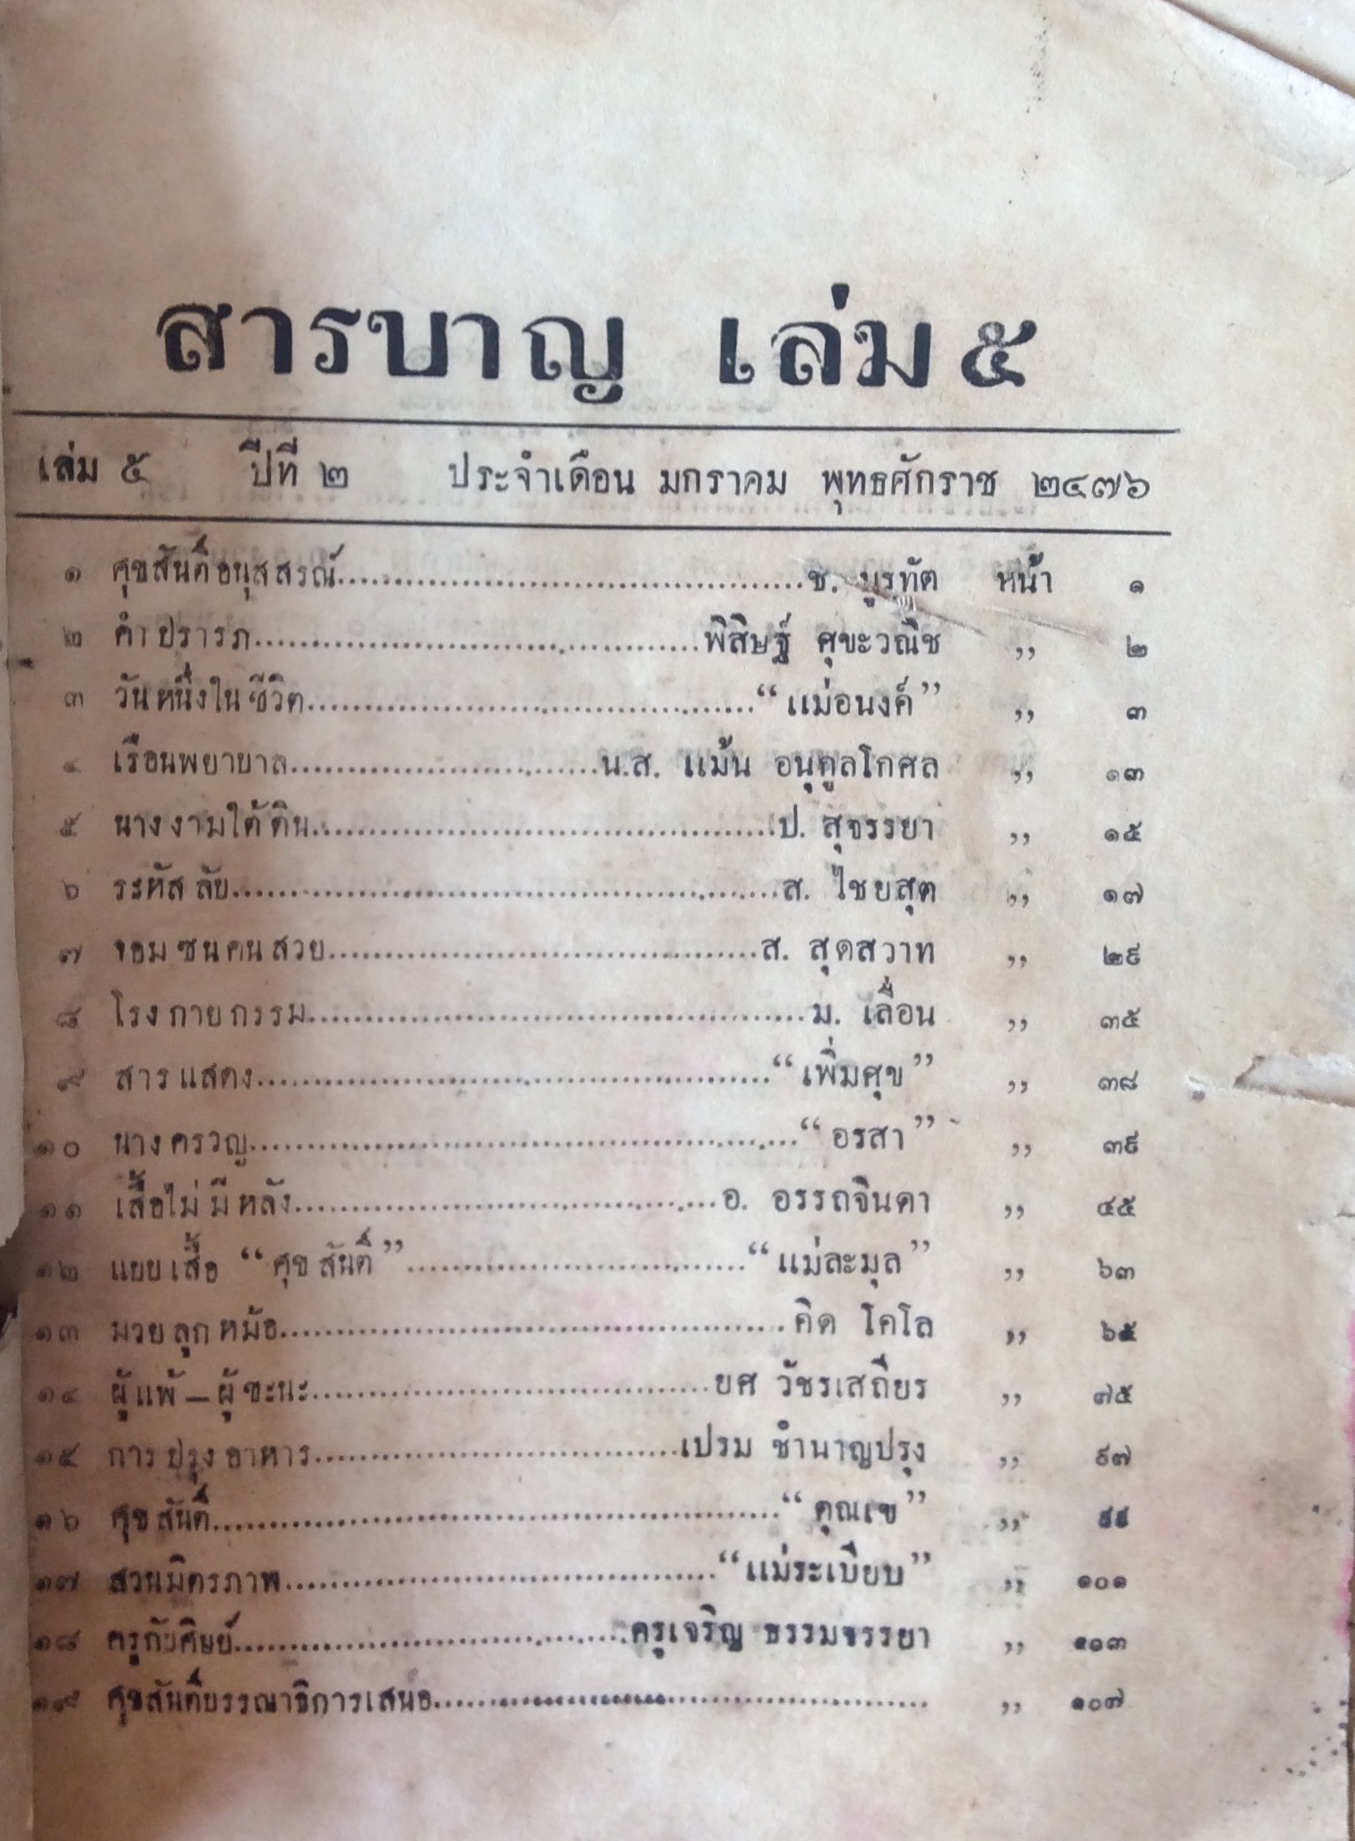 สารบาญ เล่ม ๕
เล่ม ๕ ปีที่ ๒ ประจำเดือน มกราคม พุทธศักราช ๒๔๗๖
๑ ศุขสันติ์อนุสสรณ์........................................ช. บูรทัต หน้า ๑
๒ คำปรารภ........................................พิสิษฐ์ ศุขะวณิช ,, ๒
๓ วันหนึ่งในชีวิต........................................“แม่อนงค์” ,, ๓
๔ เรือนพยาบาล..............................น.ส. แม้น อนุกูลโกศล ,, ๑๓
๕ นางงามใต้ดิน........................................ป. สุจรรยา ,, ๑๕
๖ ระหัสลับ........................................ส. ไชยสุต ,, ๑๗
๗ จอมซนคนสวย........................................ส. สุดสวาท ,, ๒๙
๘ โรงกายกรรม........................................ม. เลื่อน ,, ๓๕
๙ สารแสดง........................................“เพิ่มศุข” ,, ๓๘
๑๐ นางครวญ........................................“อรสา” ,, ๓๙
๑๑ เสื้อไม่มีหลัง........................................อ. อรรถจินดา ,, ๔๕
๑๒ แบบเสื้อ “ศุขสันติ์”..............................“แม่ละมุล” ,, ๖๓
๑๓ มวยลูกหม้อ........................................คิด โคโล ,, ๖๕
๑๔ ผู้แพ้—ผู้ชะนะ........................................ยศ วัชรเสถียร ,, ๗๕
๑๕ การปรุงอาหาร..............................เปรม ชำนาญปรุง ,, ๙๗
๑๖ ศุขสันติ์........................................“คุณเข” ,, ๙๙
๑๗ สวนมิตรภาพ........................................“แม่ระเบียบ” ,, ๑๐๑
๑๘ ครูกับศิษย์..............................ครูเจริญ ธรรมจรรยา ,, ๑๐๓
๑๙ ศุขสันติ์บรรณาธิการเสนอ........................................ ,, ๑๐๗